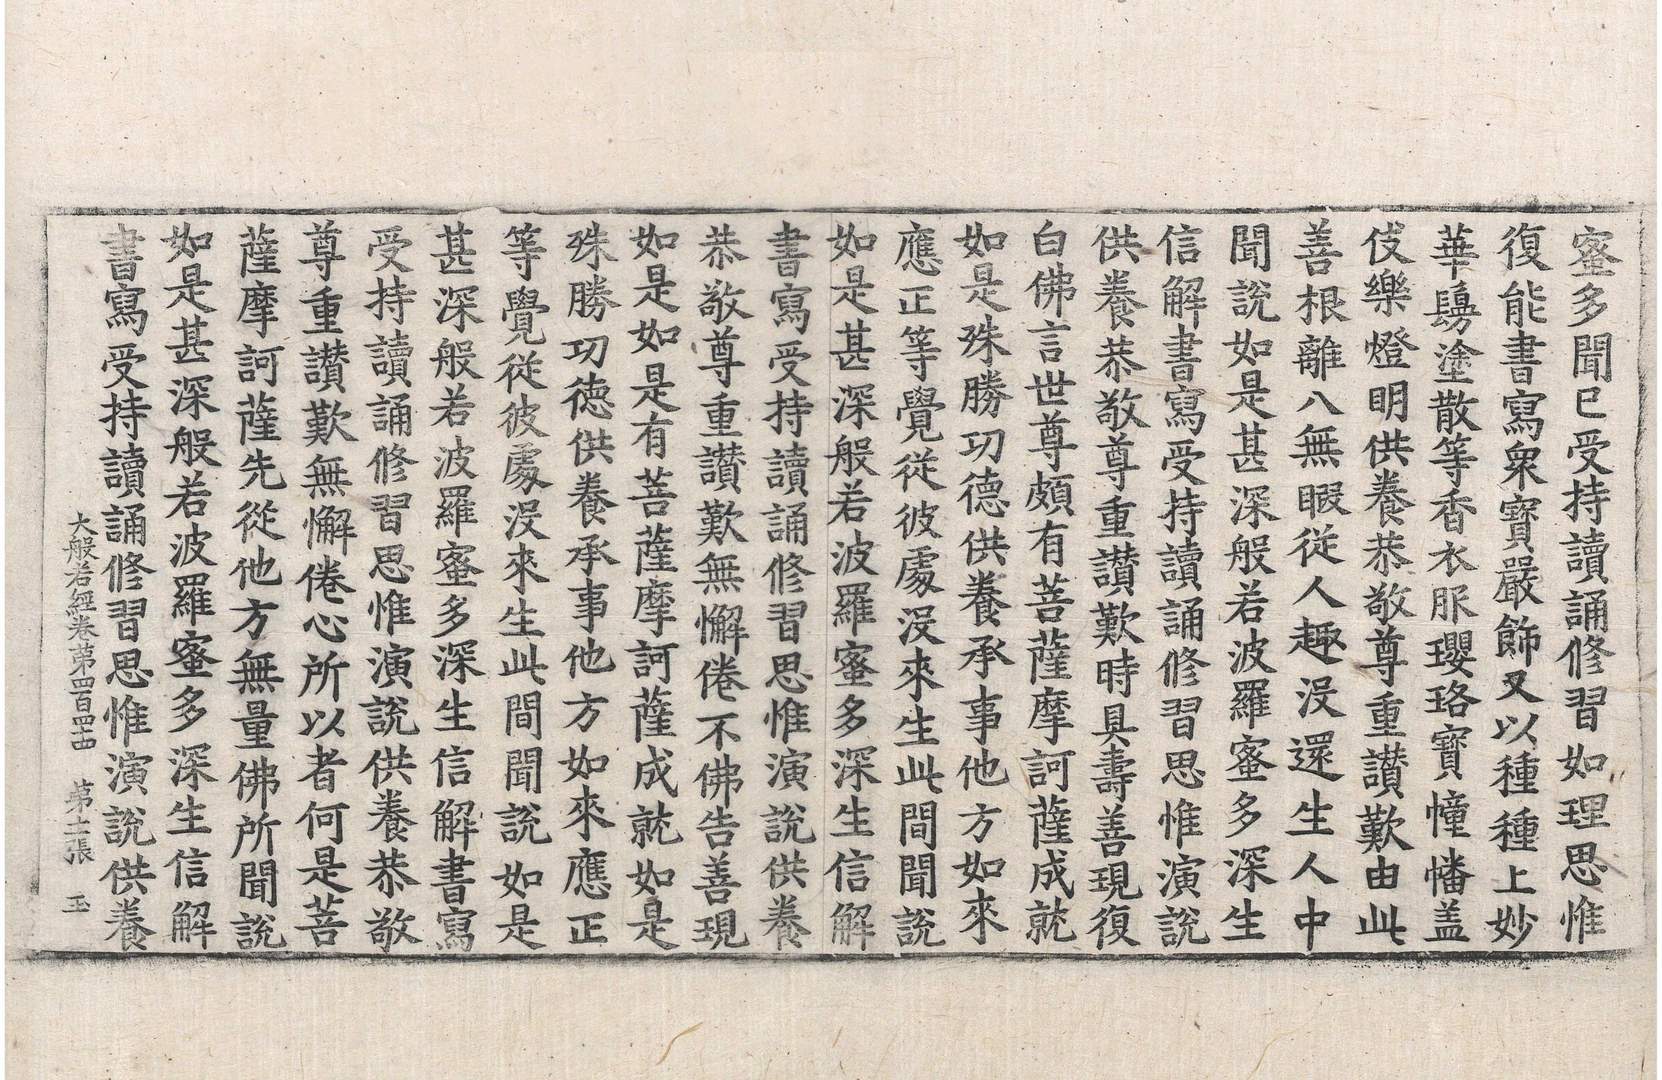 蜜多聞已受持讀誦修習如理思惟
復能書寫衆寶嚴飾又以種種上妙
華鬘塗散等香衣服瓔珞寶幢幡盖
伎樂燈明供養恭敬尊重讃歎由此
善根離八無暇從人趣没還生人中
聞說如是甚深般若波羅蜜多深生
信解書寫受持讀誦修習思惟演說
供養恭敬尊重讃歎時具壽善現復
白佛言世尊頗有菩薩摩訶薩成就
如是殊勝功德供養承事他方如來
應正等覺從彼處没來生此間聞說
如是甚深般若波羅蜜多深生信解
書寫受持讀誦修習思惟演說供養
恭敬尊重讃歎無懈倦不佛告善現
如是如是有菩薩摩訶薩成就如是
殊勝功德供養承事他方如來應正
等覺從彼處没來生此間聞說如是
甚深般若波羅蜜多深生信解書寫
受持讀誦修習思惟演說供養恭敬
尊重讃歎無懈倦心所以者何是菩
薩摩訶薩先從他方無量佛所聞說
如是甚深般若波羅蜜多深生信解
書寫受持讀誦修習思惟演說供養
大般若經卷第四百四十四 第十二張 玉